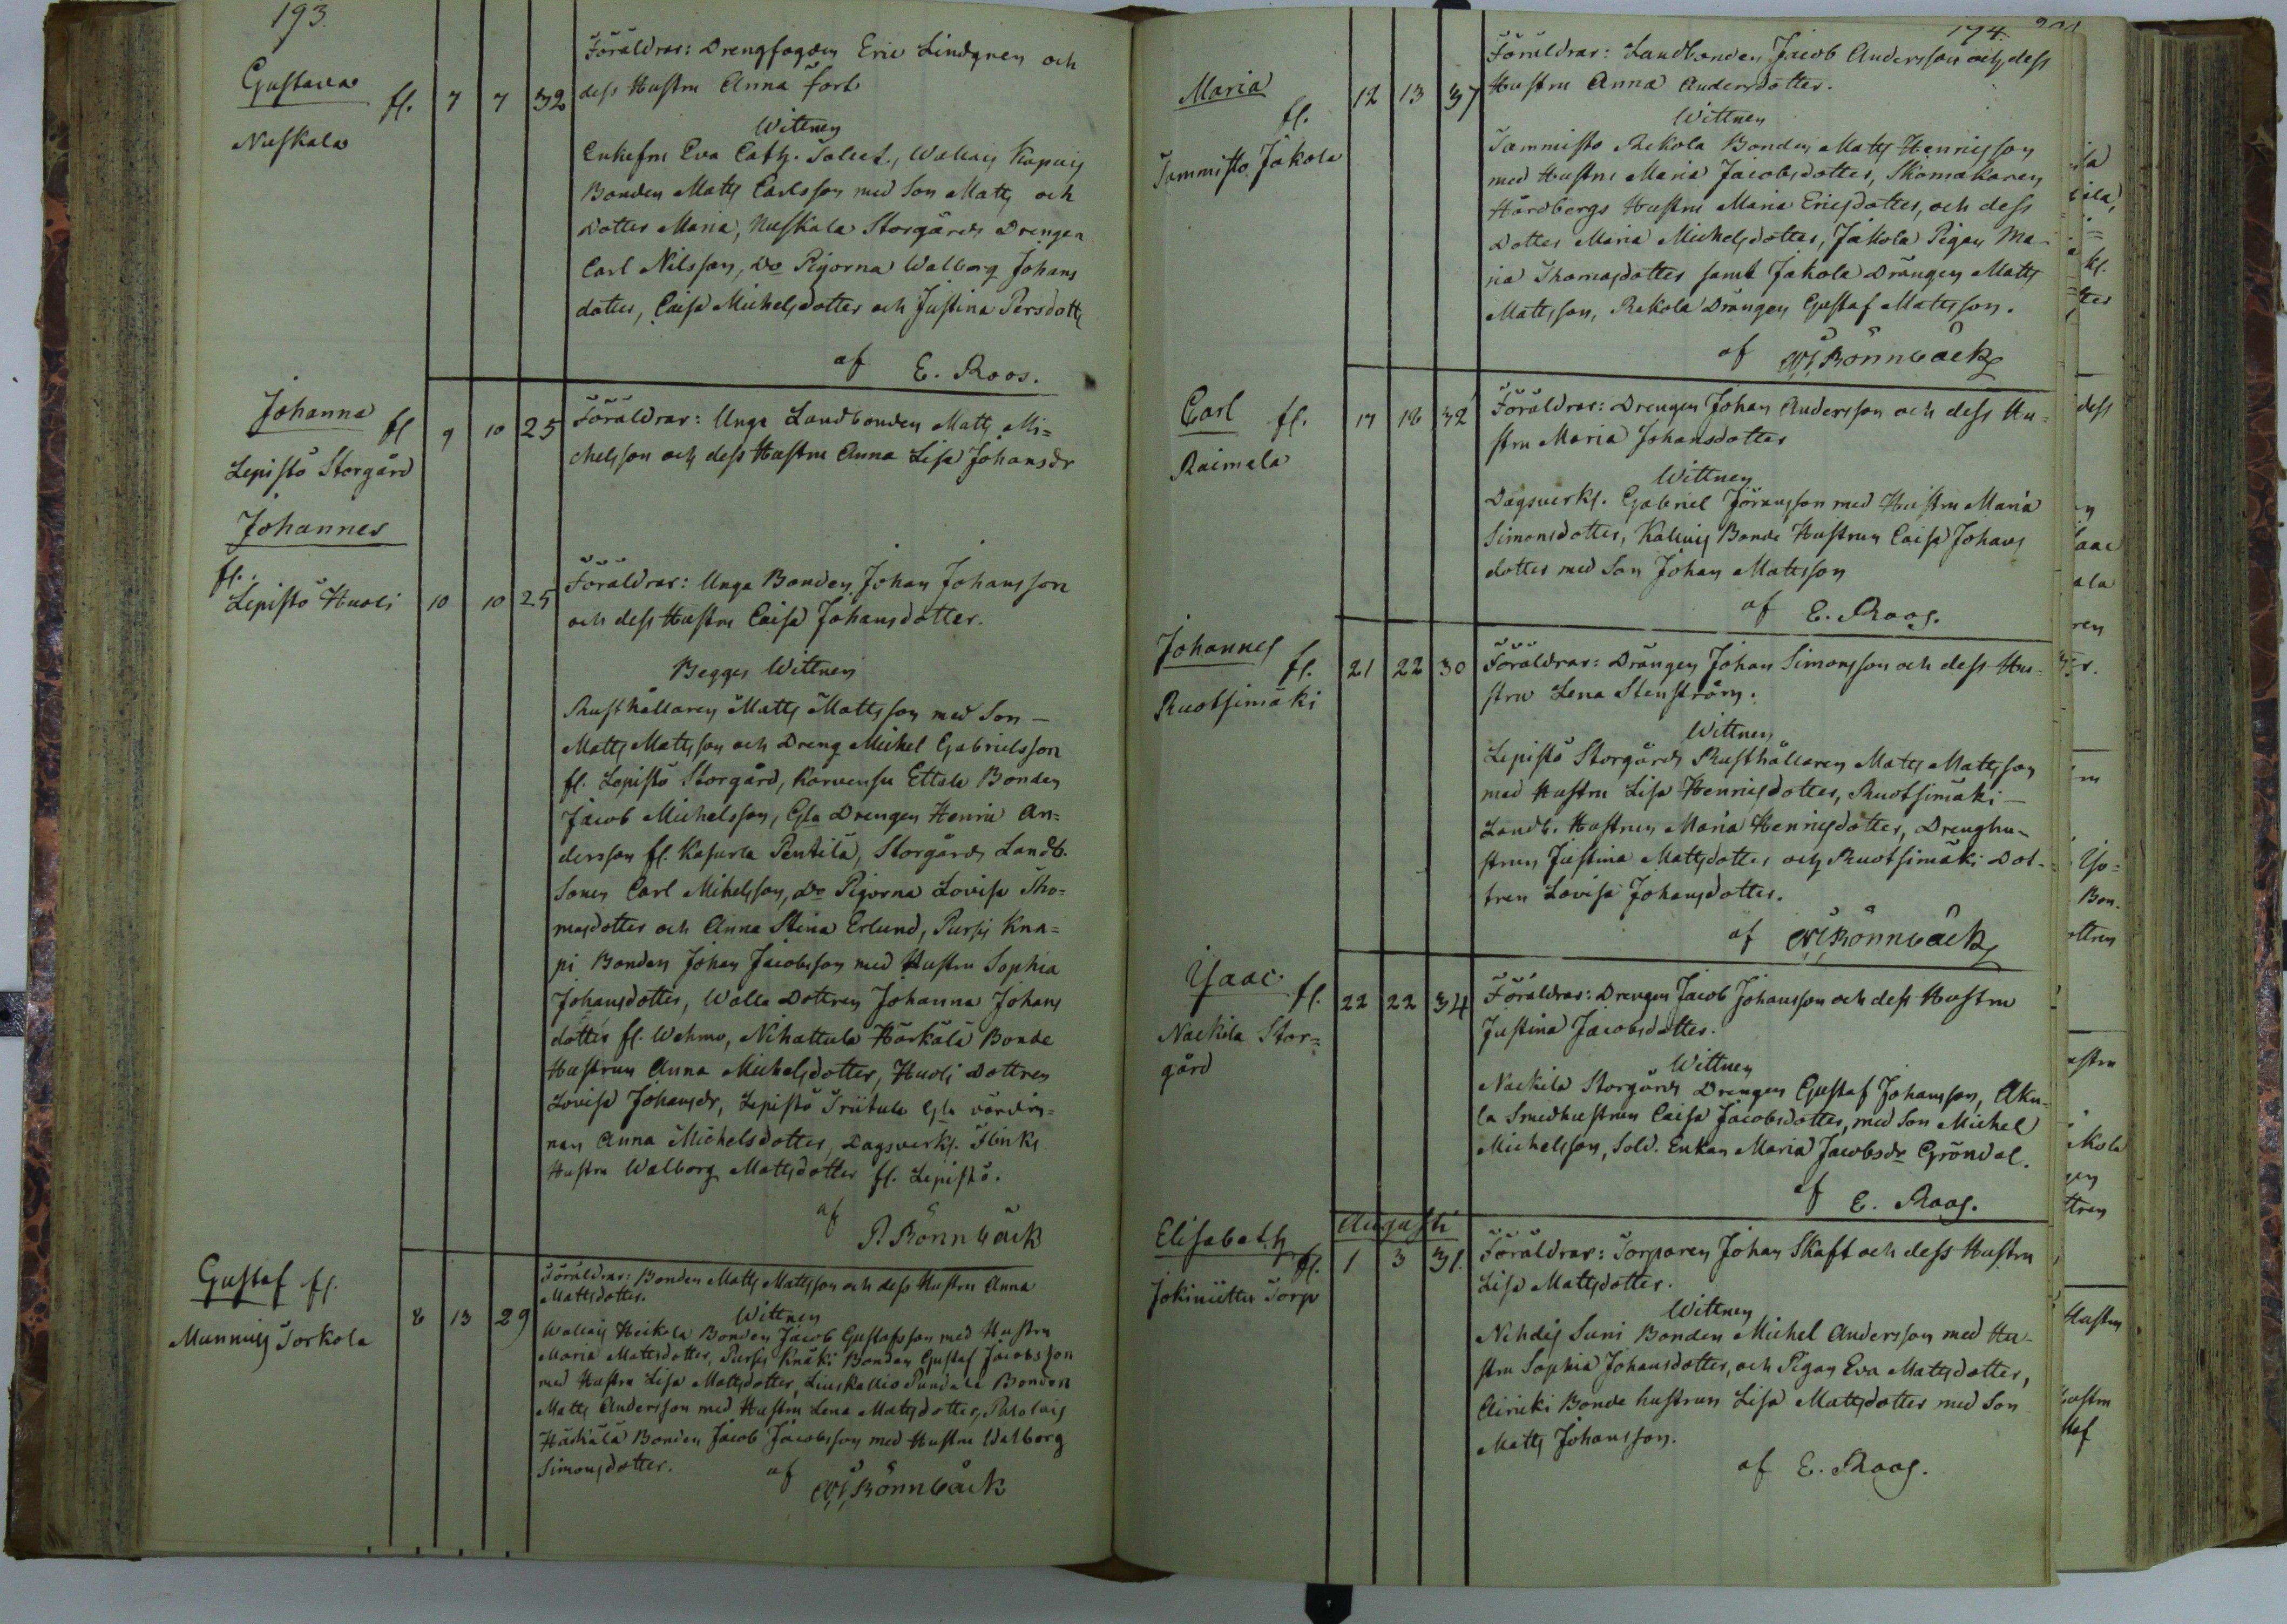 193.
Gustava
fl. 7 7 32
Nuskala
Föräldrar: Drengfogden Eric Lindgren och
dess Hustru Anna Fort
Wittnen
Enkefru Eva Cath. Wallais
Bonden Matts Carlsson med Son Matts och
Dotter Maria, Nuskala Storgårds Drengen
Carl Nilsson, Do Pigorna Walborg Johans
dotter, Caisa Michelsdotter och Justina Persdotts
af E. Roos.
Johanna
fl 9 10 25
Lepistö Storgård
Föräldrar: Unga Landbonden Matts Mi=
chelsson och dess Hustru Anna Lisa Johansdr
Johannes
fl.
Lepistö Huoli 10 10 25
Föräldrar: Unga Bonden Johan Johansson
och dess Hustru Caisa Johansdotter.
Begges Wittnen
Rusthållaren Matts Mattsson med Son –
Matts Mattsson och Dreng Michel Gabrielsson
fl. Lepistö Storgård, Karvensu Ettala Bonden
Jacob Michelsson, Gla Drengen Henric An=
dersson fl. Kasurla Pentilä, Storgårds Landb.
Sonen Carl Mihelsson, Do Pigorna Lovisa Tho=
masdotter och Anna Stina Erlund, Pursis Kna=
pi Bonden Johan Jacobsson med Hustru Sophia
Johansdotter, Walla Dottren Johanna Johans
dotter fl. Wehmo, Nihattula Härkälä Bonde
Hustrun Anna Michelsdotter, Huoli Dottren
Lovisa Johansdr, Lepistö Gla värdin=
nan Anna Michelsdotter, Dagsverks. Flinks
Hustru Walborg Mattsdotter fl. Lepistö.
af
R. Rönnbäck
Gustaf fl.
8 13 29
Munnis Torkola
Föräldrar: Bonden Matts Mattsson och dess Hustru Anna
Mattsdotter.
Wittnen
Wallais Heikola Bonden Jacob Gustafsson med Hustru
Maria Mattsdotter, Pursis Knäki Bonden Gustaf Jacobsson
med Hustru Lisa Mattsdotter, Liuskallio Bonden
Matts Andersson med Hustru Lena Mattsdotter,
Bonden Jacob Jacobsson med Hustru Walborg
Simonsdotter. af
Rönnbäck
194.
Maria
fl. 12 13 37
Tammisto Jakola
Föräldrar: Landbonden Jacob Andersson och dess
Hustru Anna Andersdotter.
Wittnen
Tammisto Rekola Bonden Matts Henricsson
med Hustru Maria Jacobsdotter, Skomakaren
Hårdbergs Hustru Maria Ericsdotter, och dess
Dotter Maria Michelsdotter, Jakola Pigan Ma-
ria Thomasdotter samt Jakola Drängen Matts
Mattsson, Rekola Drängen Gustaf Mattsson.
af Rönnbäck
Carl fl. 17 18 32
Raimela
Föräldrar: Drengen Johan Andersson och dess Hu=
stru Maria Johansdotter
Wittnen
Dagsverks. Gabriel Jöransson med Hustru Maria
Simonsdotter, Kallais Bonde Hustrun Caisa Johans
dotter med Son Johan Mattsson
af E. Roos.
Johannes
fl. 21 22 30
Ruotsimäki
Föräldrar: Drängen Johan Simonsson och dess Hu-
stru Lena Stenström.
Wittnen
Lepistö Storgårds Rusthållaren Matts Mattsson
med Hustru Lisa Henricsdotter, Ruotsimäki –
Landb. Hustrun Maria Henricsdotter, Drenghu-
strun Justina Mattsdotter och Ruotsimäki Dot-
tren Lovisa Johansdotter.
af Rönnbäck
Ysaac
fl. 22 22 34
Naekila Stor=
gård
Föräldrar: Drengen Jacob Johansson och dess Hustru
Justina Jacobsdotter.
Wittnen
Naekila Storgårds Drengen Gustaf Johansson, Aku-
la Smedhustrun Caisa Jacobsdotter, med Son Michel
Michelsson, Sold. Enkan Maria Jacobsdr Gröndal.
af E. Roos.
Augusti
Elisabeth
fl. 1 3 31.
Jokiniittu Torp
Föräldrar: Torparen Johan Skaft och dess Hustru
Lisa Mattsdotter.
Wittnen
Nehdis Suni Bonden Michel Andersson med Hu-
stru Sophia Johansdotter, och Pigan Eva Mattsdotter,
Airicki Bonde hustrun Lisa Mattsdotter med Son
Matts Johansson.
af E. Roos.